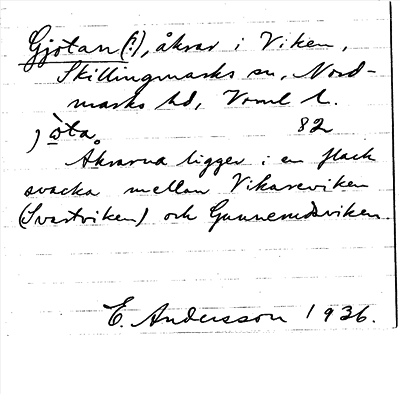 Gjötan(?), åkrar i Viken,
Skillingmarks sn, Nord-
marks hd, Vrml l.
jòta 82
Åkrarna ligger i en flack
svacka mellan Vikareviken
(Svartviken) och Gunnerudsviken.
E. Andersson 1936.